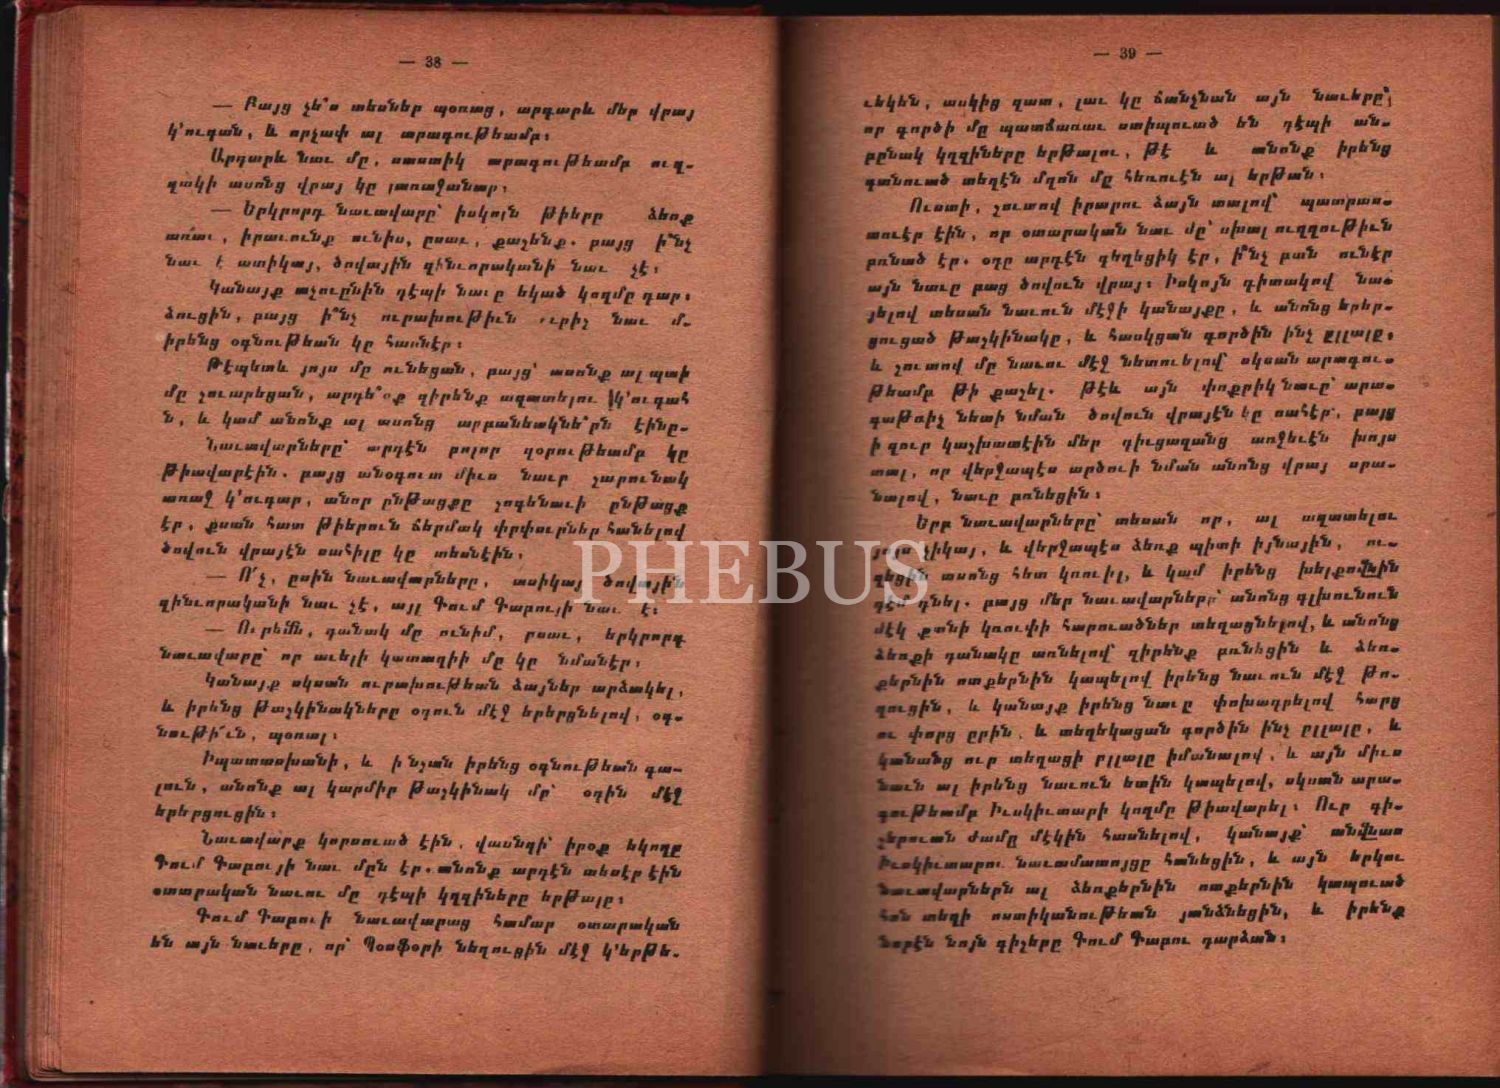 — 38 —
— Բայց չե՞ս տեսներ պօռաց, արդարև մեր վրայ
կ՚ուգան, և որչափ ալ արագութեամբ։
Արդարև նաւ մը, սաստիկ արագութեամբ ուղ-
ղակի ասոնց վրայ կը յառաջանար։
— Երկրորդ նաւավարը՝ իսկոյն թիերը ձեռք
առաւ, իրաւունք ունիս, ըսաւ, քաշենք. բայց ի՞նչ
նաւ է ատիկայ, ծովային զինւորականի նաւ չէ։
Կանայք աչուընին դէպի նաւը եկած կողմը դար-
ձուցին, բայց ի՞նչ ուրախութիւն ուրիշ նաւ մ-
իրենց օգնութեան կը հասնէր։
Թէպետև յոյս մը ունեցան, բայց՝ ասոնք ալ պահ
մը շուարեցան, արդե՞օք զիրենք ազատելու կ՚ուգահ
ն, և կամ անոնք ալ ասոնց արբանեակնե՞րն էինը-
Նաւավարները՝ արդէն բոլոր զօրութեամբ կը
թիավարէին. բայց անօգուտ միւս նաւը շարունակ
առաջ կ՚ուգար, անոր ընթացքը շոգենաւի ընթացք
էր, քսան հատ թիերուն ճերմակ փրփուրներ հանելով
ծովուն վրայէն սահիլը կը տեսնէին։
— Ո՛չ, ըսին նաւավարները, ասիկայ ծովային
զինւորականի նաւ չէ, այլ Գում Գաբույի նաւ է։
— Ուրեմն, դանակ մը ունիմ, ըսաւ, երկրորդ
նաւավարը՝ որ աւելի կատաղիի մը կը նմանէր։
Կանայք սկսան ուրախութեան ձայներ արձակել,
և իրենց թաշկինակները օդուն մէջ երերցնելով, օգ-
նութի՜ւն, պօռալ։
Իպատասխանի, և ի նշան իրենց օգնութեան գա-
լուն, անոնք ալ կարմիր թաշկինակ մը՝ օդին մէջ
երերցուցին։
Նաւավարք կորսուած էին, վասնզի՝ իրօք եկողը
Գում Գաբույի նաւ մըն էր. անոնք արդէն տեսէր էին
օտարական նաւու մը դէպի կղզիները երթալը։
Գում Գաբուի նաւավարաց համար օտարական
են այն նաւերը, որ՝ Պօսֆօրի նեղուցին մէջ կ՚երթե-
— 39 —
ւեկեն, ասկից զատ, լաւ կը ճանչնան այն նաւերը՝
որ գործի մը պատճառաւ ստիպուած են դէպի ան-
բընակ կղզիները երթալու, թէ և անոնք իրենց
գտնուած տեղէն մղոն մը հեռուէն ալ երթան։
Ուստի, շուտով իրարու ձայն տալով՝ պատրաս-
տուէր էին, որ օտարական նաւ մը՝ սխալ ուղղութիւն
բռնած էր. օդը արդէն գեղեցիկ էր, ի՞նչ բան ունէր
այն նաւը բաց ծովուն վրայ։ Իսկոյն դիտակով նա-
յելով տեսան նաւուն մէջի կանայքը, և անոնց երեր-
ցուցած թաշկինակը, և հասկցան գործին ինչ ըլլալը.
և շուտով մը նաւու մէջ նետուելով՝ սկսան արագու-
թեամբ թի քաշել. թէև այն փոքրիկ նաւը՝ արա-
գաթռիչ նետի նման ծովուն վրայէն կը սահէր, բայց
ի զուր կաշխատէին մեր դիւցազանց առջեւէն խոյս
տալ, որ վերջապէս արծուի նման անոնց վրայ սրա-
նալով, նաւը բռնեցին։
Երբ նաւավարները՝ տեսան որ, ալ ազատելու
յոյս չիկայ, և վերջապէս ձեռք պիտի իյնային, ու-
զեցին ասոնց հետ կռուիլ, և կամ իրենց խելքովնին
դէմ դնել. բայց մեր նաւավարները՝ անոնց գլխունուն
մէկ քանի կռուփի հարուածներ տեղացնելով, և անոնց
ձեռքի դանակը առնելով՝ զիրենք բռնեցին և ձեռ-
քերնին ոտքերնին կապելով իրենց նաւուն մէջ թո-
ղուցին, և կանայք իրենց նաւը փոխադրելով հարց
ու փորց ըրին, և տեղեկացան գործին ինչ ըլլալը, և
կանանց ուր տեղացի ըլլալը իմանալով, և այն միւս
նաւն ալ իրենց նաւուն ետին կապելով, սկսան արա-
գութեամբ Իւսկիւտարի կողմը թիավարել։ Ուր գի-
շերուան ժամը մէկին հասնելով, կանայք՝ անվնաս
Իւսկիւտարու նաւամատոյցը հանեցին, և այն երկու
նաւավարներն ալ ձեռքերնին ոտքերնին կապուած
հոն տեղի ոստիկանութեան յանձնեցին, և իրենք
նորէն նոյն գիշերը Գում Գաբու դարձան։
PHEBUS